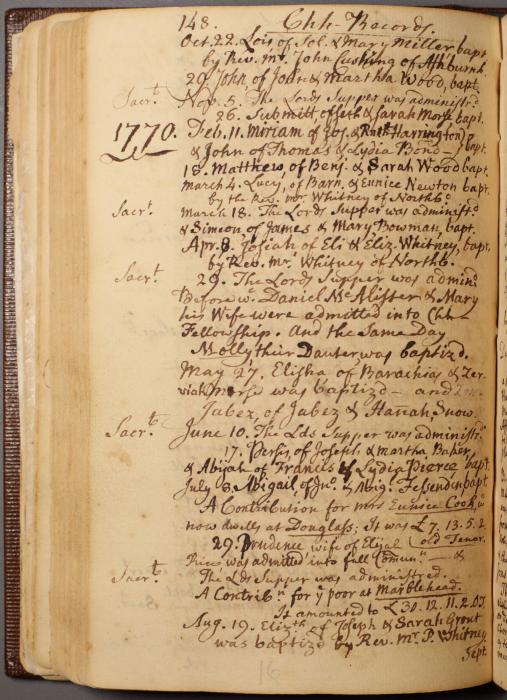 148. Chh- Records.
Oct. 22. Lois of Sol. & Mary Miller, bapt
by Rev. mr. John Cushing of Ashburnh.
29. John of John & Martha Wood, bapt.
Sacrt. Nov. 5. The Lords Supper was administrd
26. Submitt, of Seth & Sarah Morse bapt.
1770. Feb. 11. Miriam of Jos. & Ruth Harrington
& John of Thomas & Lydia Bond bapt.
18. Matthew, of Benj. & Sarah Wood bapt.
March 4. Lucy, of Barn. & Eunice Newton bapt.
by the Rev. mr. Whitney of Northb.
Sacrt. March 18. The Lords Supper was administrd
& Simeon of James & Mary Bowman, bapt.
Apr. 8. Josiah of Eli & Eliz. Whitney, bapt.
by Rev. mr. Whitney of Northb.
Sacrt. 29. The Lords Supper was admind
Before wc. Daniel McAlister & Mary
his Wife were admitted into Chh-
Fellowship. And the Same Day
Molly their Dauter was baptizd.
May 27. Elisha of Barachias & Zer-
viah Morse was baptizd - and
Jabez, of Jabez & Hanah Snow.
Sacrt. June 10. The Lds Supper was administrd.
17. Persis, of Joseph & Martha Baker,
& Abijah of Francis & Lydia Pierce bapt.
July 8. Abigail of Jno. & Abig. Fessenden bapt
A Contribution for mrs Eunice Cook, who
now dwells at Douglass; It was £7. 13. 5. 2
old Tenor.
29. Prudence wife of Elijah
Rice, was admitted into full Comun. - &
Sacrt. The Lds Supper was administred.
A Contribn. for ye poor at Marblehead.
It amounted to £30. 12. 11. 2 O.T.
Aug. 19. Elizth. of Joseph & Sarah Grout
was baptizd by Rev. Mr. P. Whitney
Sept.
16